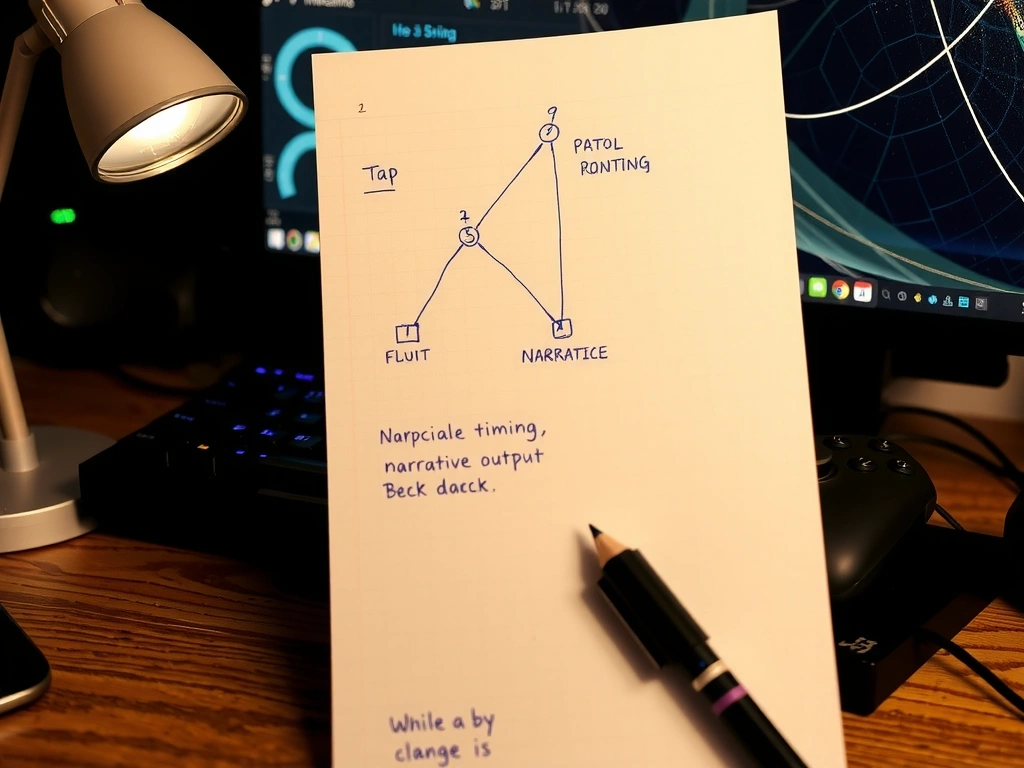 He 3 String
2
9
PATOL
RONTING
Tap
7
5
FLUIT
NARRATICE
Narpciale timing,
narrative output
Beck dacck.
While a by
clange is